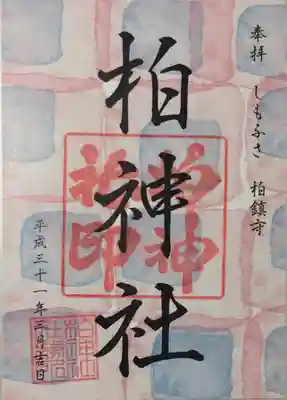 奉拝 しもふさ 柏鎮守
柏神社
平成三十一年三月吉日